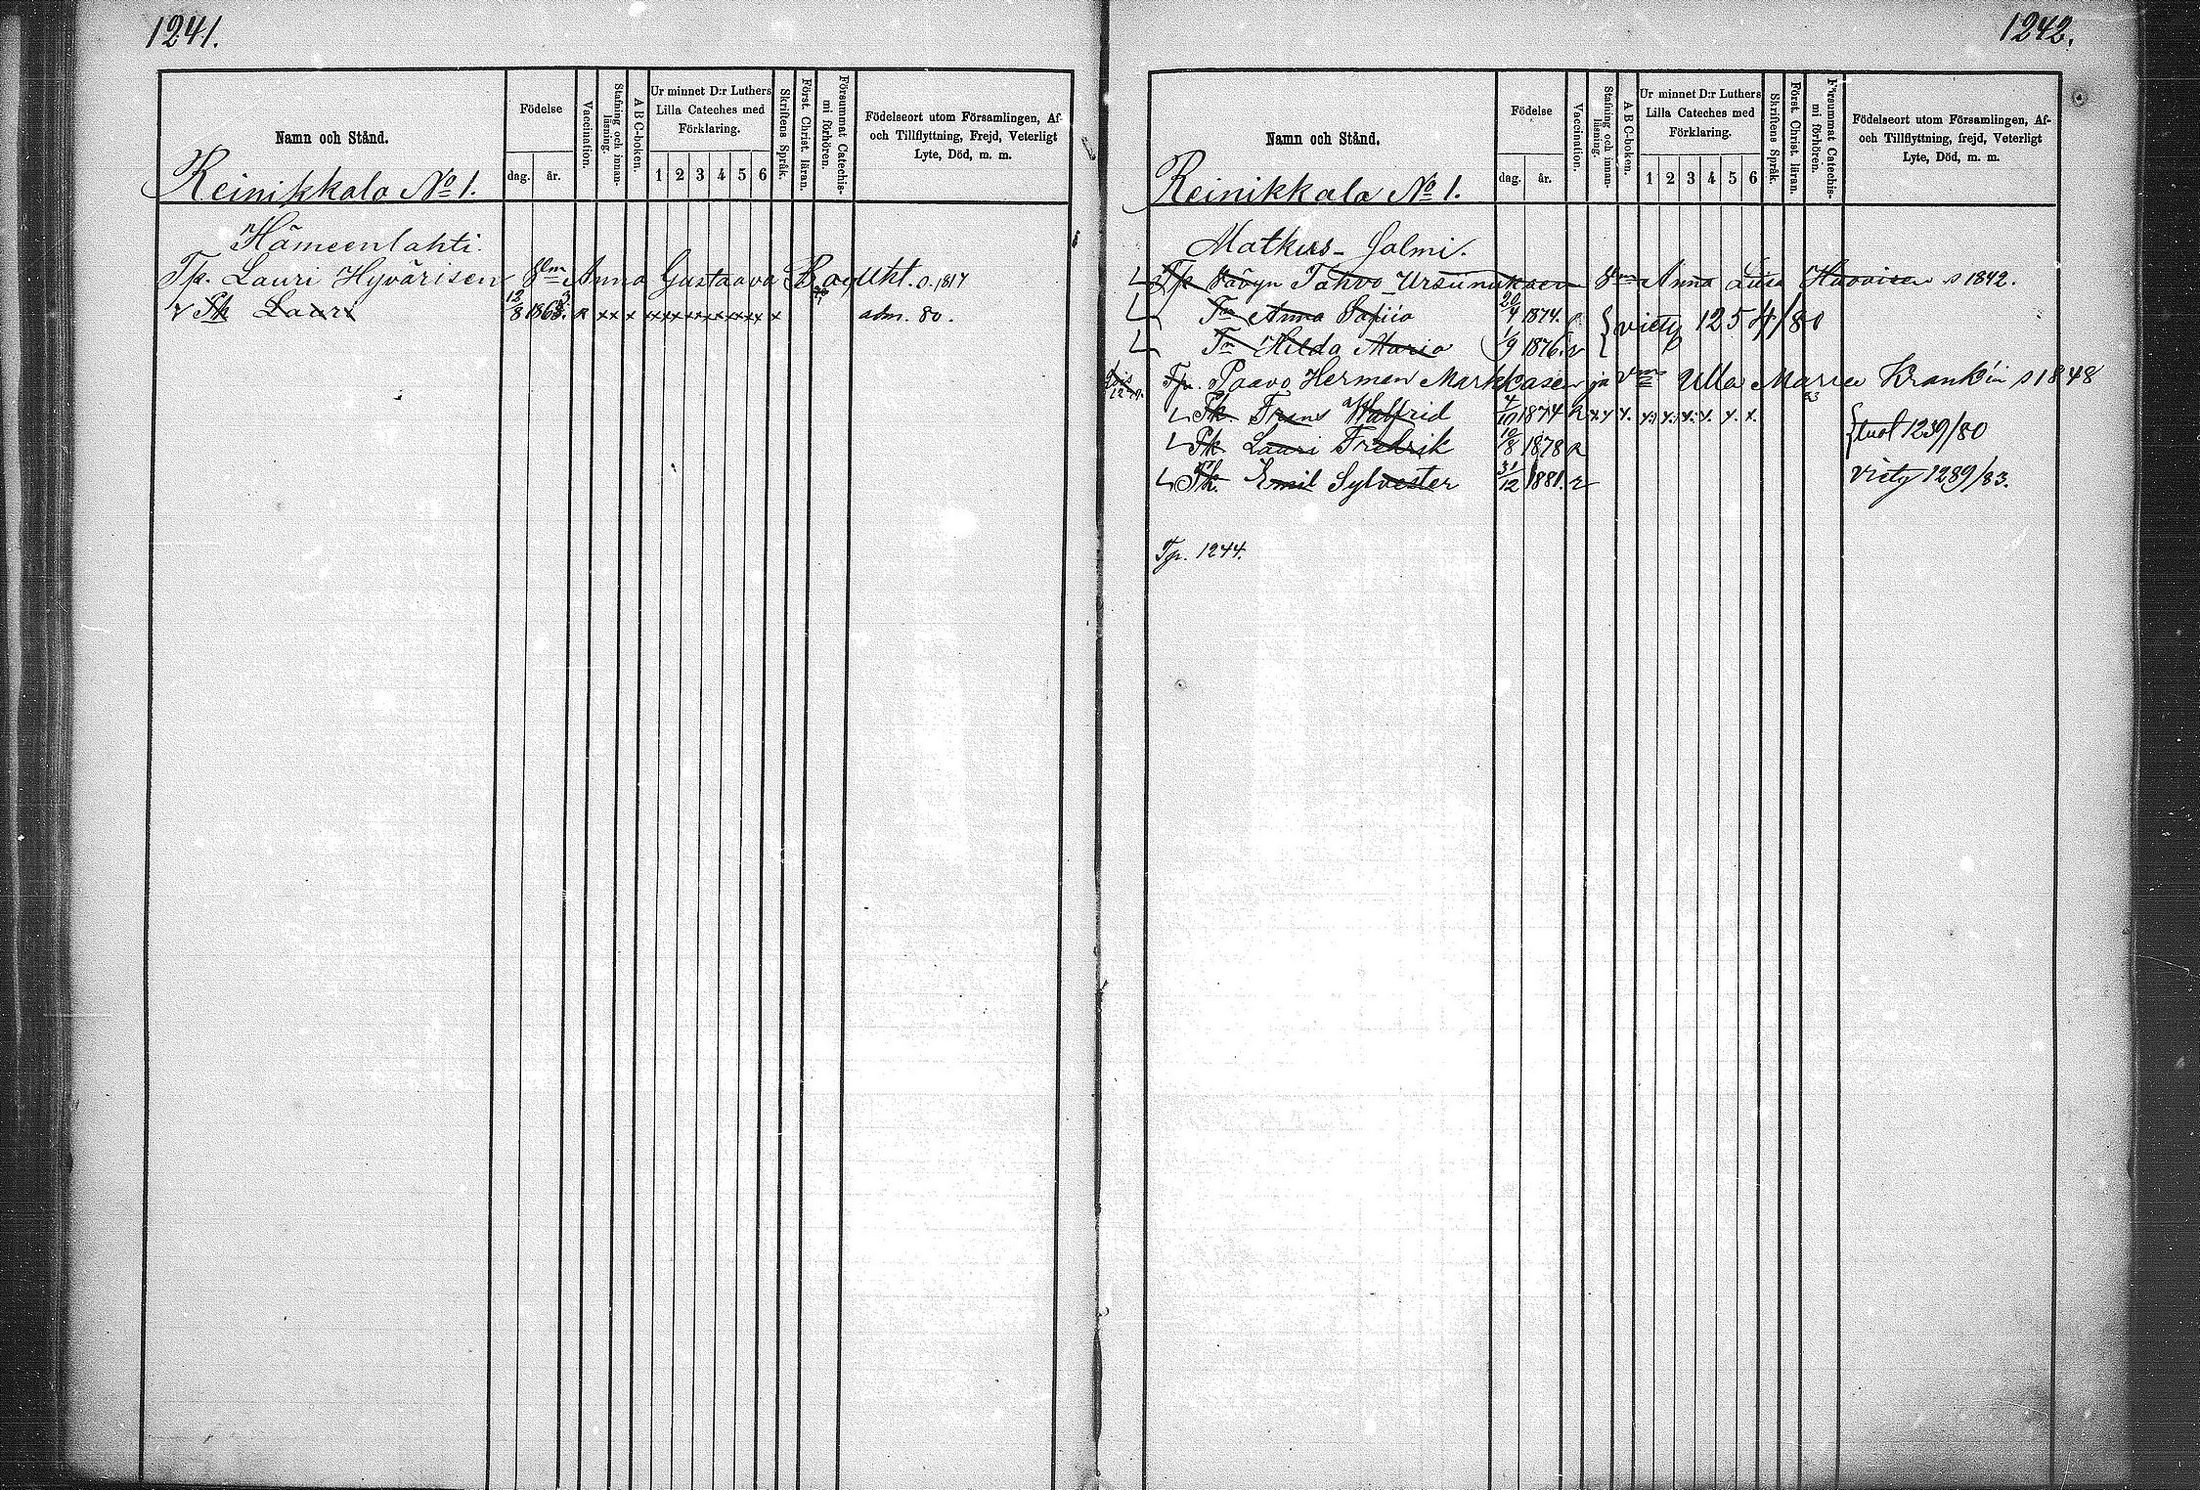 1241.
Namn och Stånd.
Födelse
dag. år.
Vaccination.
Stafning och innan-läsning.
ABC-boken.
Ur minnet D:r Luthers Lilla Cateches med Förklaring.
1 2 3 4 5 6
Skriftens Språk.
Först. Christ. läran.
Försummat Catechis-mi förhören.
Födelseort utom Församlingen, Af-
och Tillflyttning, Frejd, Veterligt
Lyte, Död, m. m.
Reinikkala No 1.
Hämeenlahti.
Tp. Lauri Hyvärisen Vm Anna Gustaava s. 1817
Pk Lauri 12/8 1863. R xx x xx xx xx xx xx xx x adm. 80.
1242.
Namn och Stånd.
Födelse
dag. år.
Vaccination.
Stafning och innan-läsning.
ABC-boken.
Ur minnet D:r Luthers Lilla Cateches med Förklaring.
1 2 3 4 5 6
Skriftens Språk.
Först. Christ. läran.
Försummat Catechis-mi förhören.
Födelseort utom Församlingen, Af-
och Tillflyttning, frejd, Veterligt
Lyte, Död, m. m.
Reinikkala No 1.
Matkus-Salmi.
Tp Tahvo Vm Anna Liisa s 1842.
Tr Anna Sofiia 20/4 1874. viety 1254/80
Tr Hilda Maria 1/9 1876. r
Tp. Paavo Herman Markkasen ja Vm Ulla Maria s 1848
Pk. Frans Walfrid 4/10 1874 R x x x. x. x. x. x. x. x.
Pk Lauri Fredrik 10/8 1878 R tuol 1239/80
Pk. Emil Sylvester 31/12 1881. r viety 1289/83.
Tp. 1244.